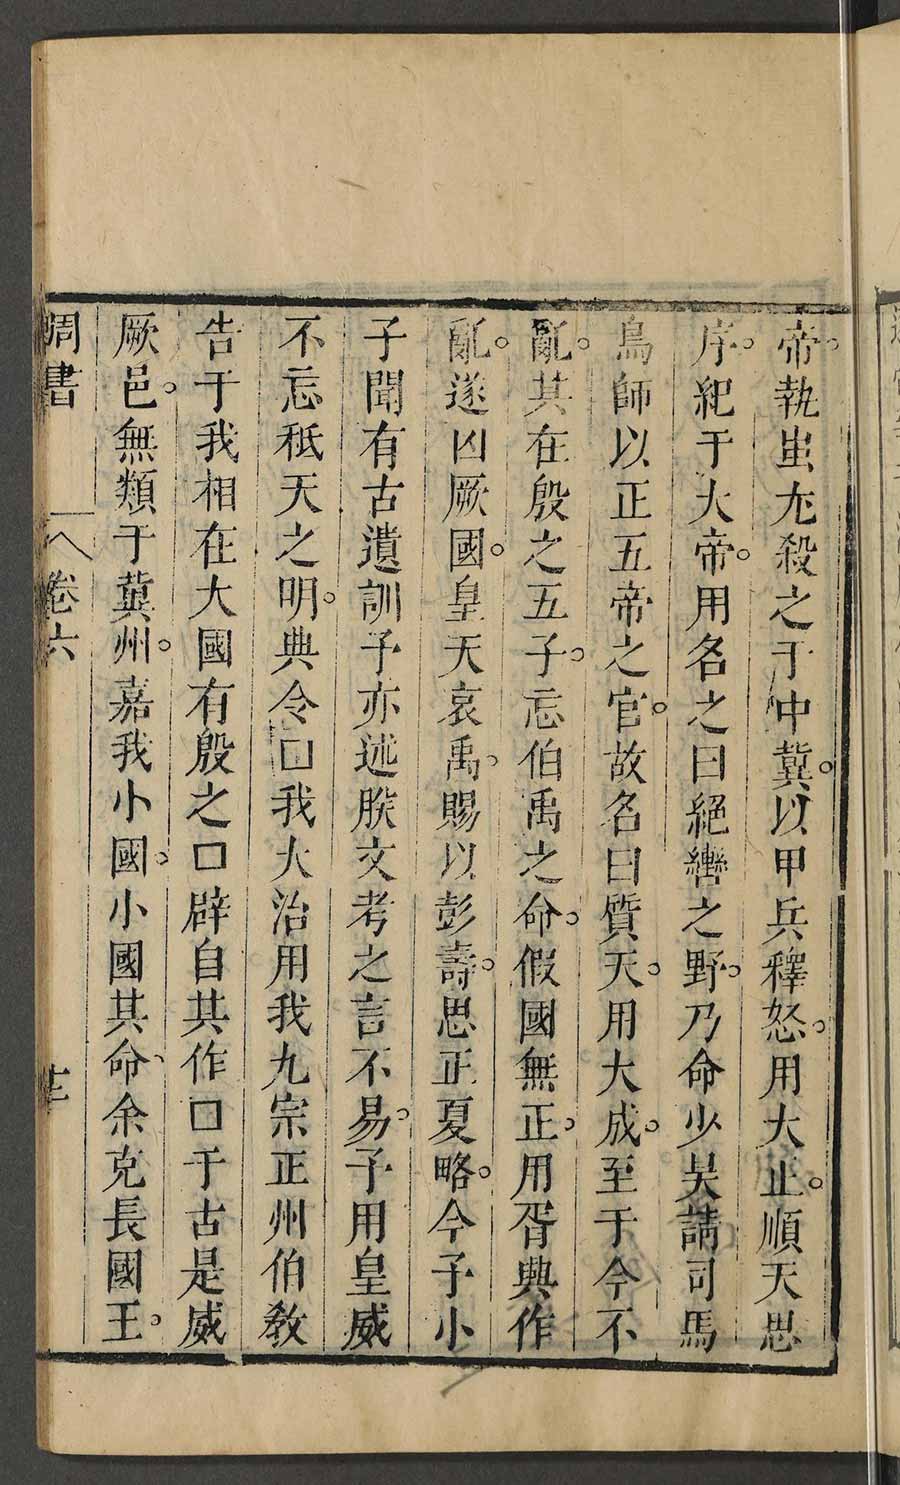 帝執蚩尤殺之于中冀。以甲兵釋怒。用大正順天思
序。紀于大帝。用名之曰絕轡之野。乃命少昊請司馬
鳥師以正五帝之官。故名曰質天。用大成。至于今不
亂。其在殷之五子。忘伯禹之命。假國無正。用胥興作
亂。遂凶厥國。皇天哀禹。賜以彭壽。思正夏略。今予小
子聞有古遺訓予亦述朕文考之言不易。予用皇威
不忘秪天之明。典令□我大治用我九宗正州伯教
告于我相在大國有殷之□辟自其作□于古是威
厥邑。無類于冀州。嘉我小國。小國其命、余克長國王。
周書 卷六